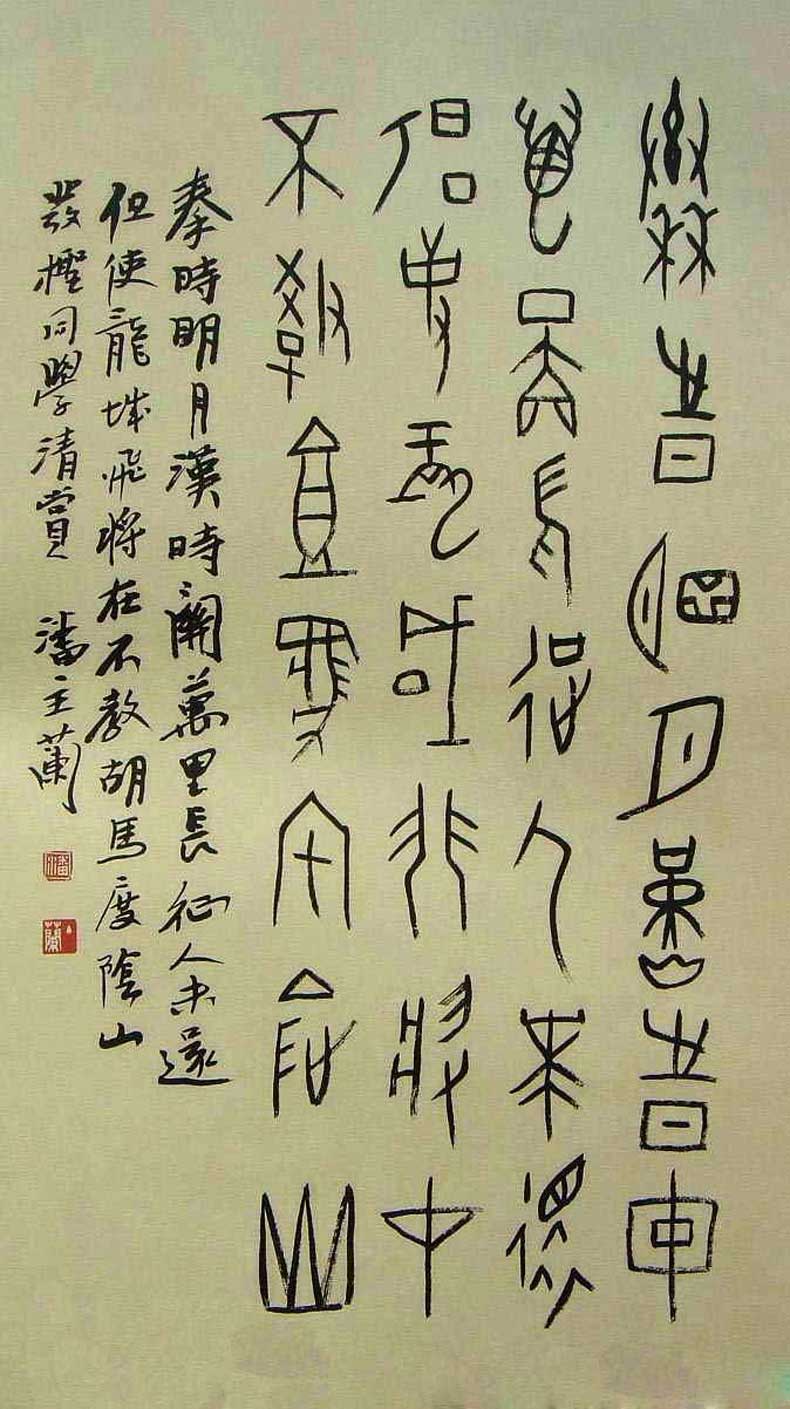 秦時明月漢時關
萬里長征人未還
但使龍城飛將在
不教胡馬度陰山
秦時明月漢時關萬里長征人未還
但使龍城飛將在不教胡馬度陰山
同學清賞 潘主蘭
潘
蘭